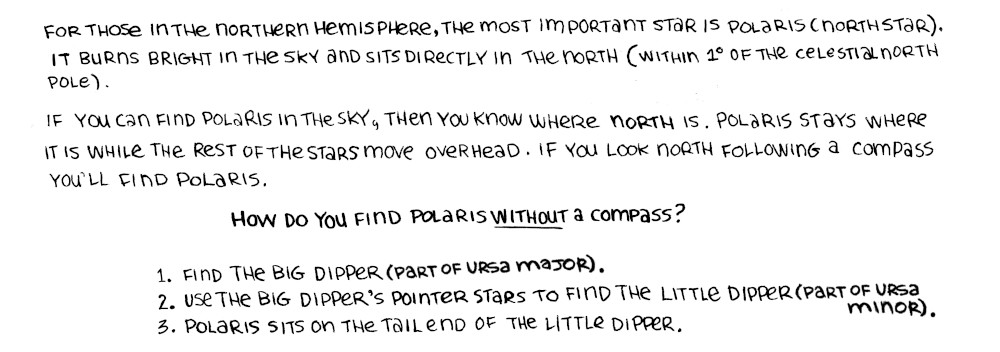 FOR THOSE IN THE NORTHERN HEMISPHERE, THE MOST IMPORTANT STAR IS POLARIS (NORTH STAR).
IT BURNS BRIGHT IN THE SKY AND SITS DIRECTLY IN THE NORTH (WITHIN 1° OF THE CELESTIAL NORTH
POLE).
IF YOU CAN FIND POLARIS IN THE SKY, THEN YOU KNOW WHERE NORTH IS. POLARIS STAYS WHERE
IT IS WHILE THE REST OF THE STARS MOVE OVERHEAD. IF YOU LOOK NORTH FOLLOWING A COMPASS
YOU'LL FIND POLARIS.
HOW DO YOU FIND POLARIS WITHOUT A COMPASS?
1. FIND THE BIG DIPPER (PART OF URSA MAJOR).
2. USE THE BIG DIPPER'S POINTER STARS TO FIND THE LITTLE DIPPER (PART OF URSA
MINOR).
3. POLARIS SITS ON THE TAIL END OF THE LITTLE DIPPER.